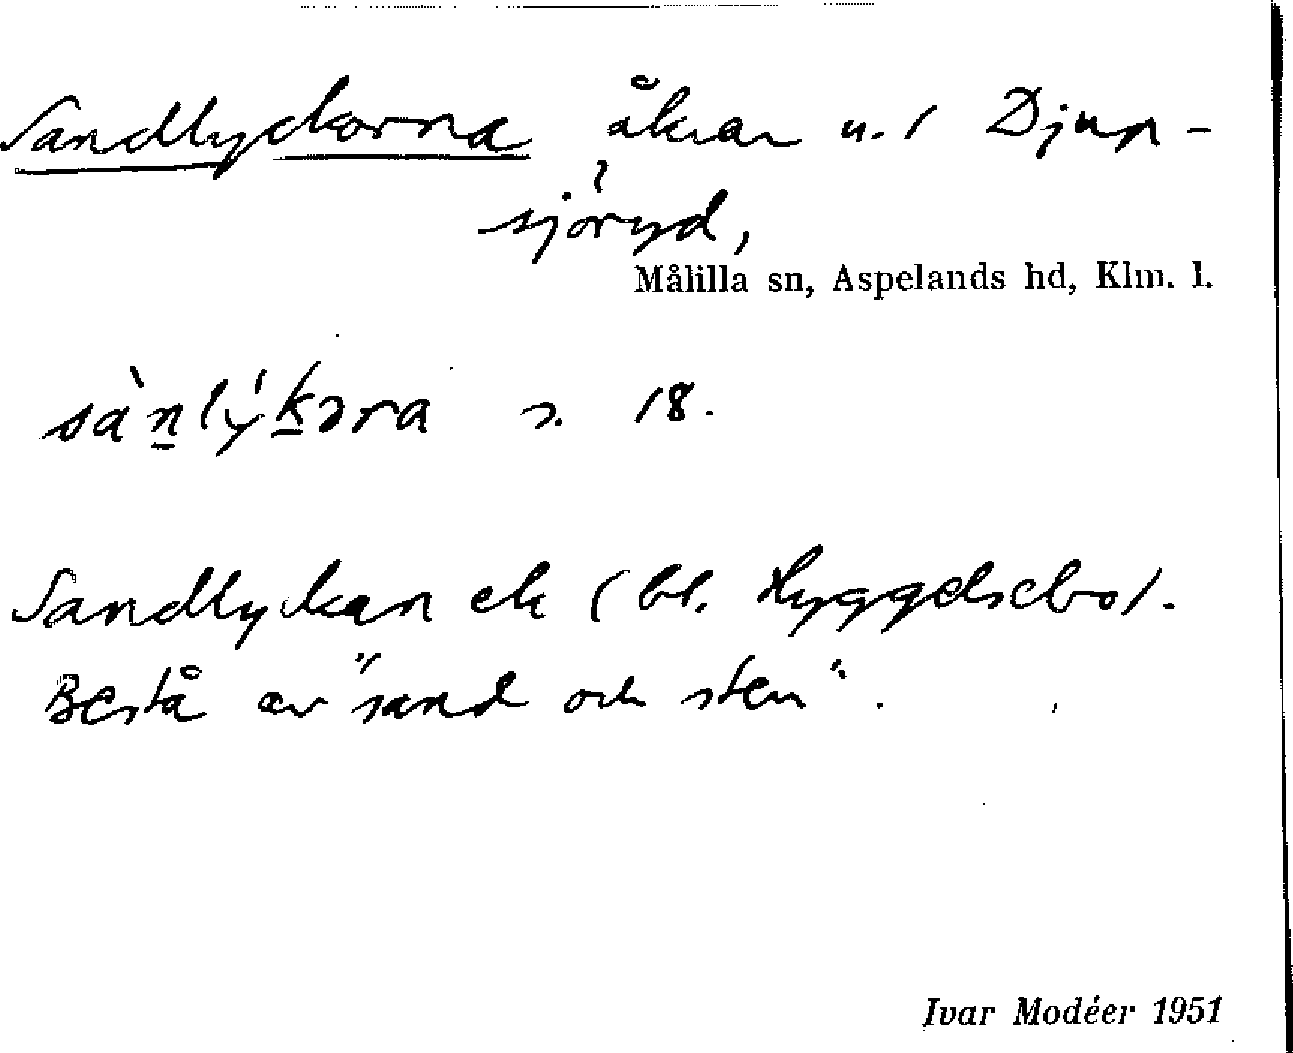 Sandlyckorna åkrar u. / Djup-
sjöryd,
Målilla sn, Aspelands hd, Klm. l.
sàn̲lýk̲əra s. 18.
Sandlyckan ek (bl. Hyggelsebo).
Bestå av "sand och sten".
Ivar Modéer 1951